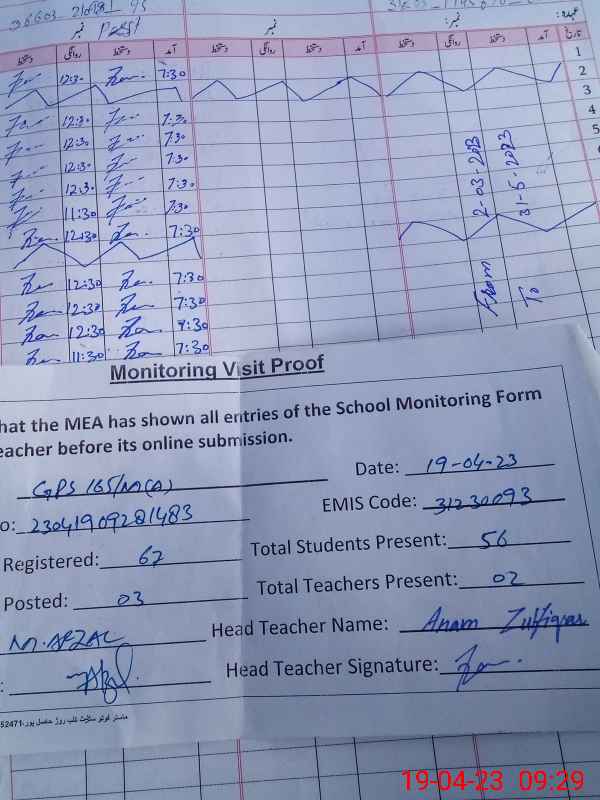 عہدہ:
نمبر:
نمبر
نمبر Pesst
تاریخ آمد دستخط روانگی دستخط آمد دستخط روانگی دستخط آمد دستخط روانگی دستخط
1
12:30 7:30 2
3
12:30 7:30 4
12:30 7:30 5
12:30 7:30
12:30 7:30
11:30 7:30
12:30 7:30
12:30 7:30
12:30 7:30
12:30 7:30
11:30 7:30
From 2-03-2023
To 31-5-2023
Monitoring Visit Proof
hat the MEA has shown all entries of the School Monitoring Form
eacher before its online submission.
GPS 165/M(A) Date: 19-04-23
o: 23041909281483 EMIS Code: 31230093
Registered: 62 Total Students Present: 56
Posted: 03 Total Teachers Present: 02
M. AFZAL Head Teacher Name: Anam Zulfiqar
: Head Teacher Signature:
52471
19-04-23 09:29